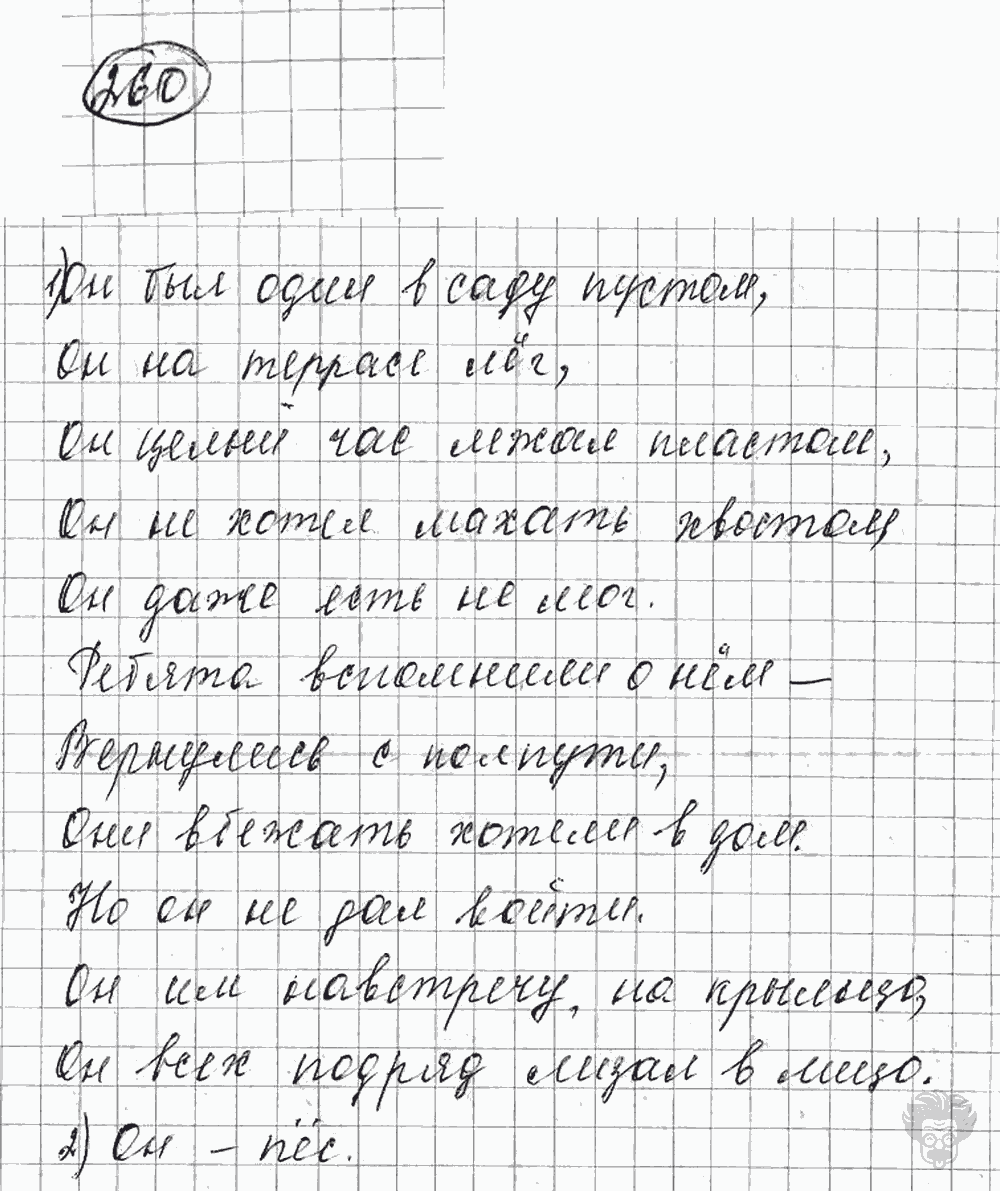 260
1) Он был один в саду пустом,
Он на террасе лёг,
Он целый час лежал пластом,
Он не хотел махать хвостом,
Он даже есть не мог.
Ребята вспомнили о нём —
Вернулись с полпути,
Они вбежать хотели в дом.
Но он не дал войти.
Он им навстречу, на крыльцо,
Он всех подряд лизал в лицо.
2) Он – пёс.